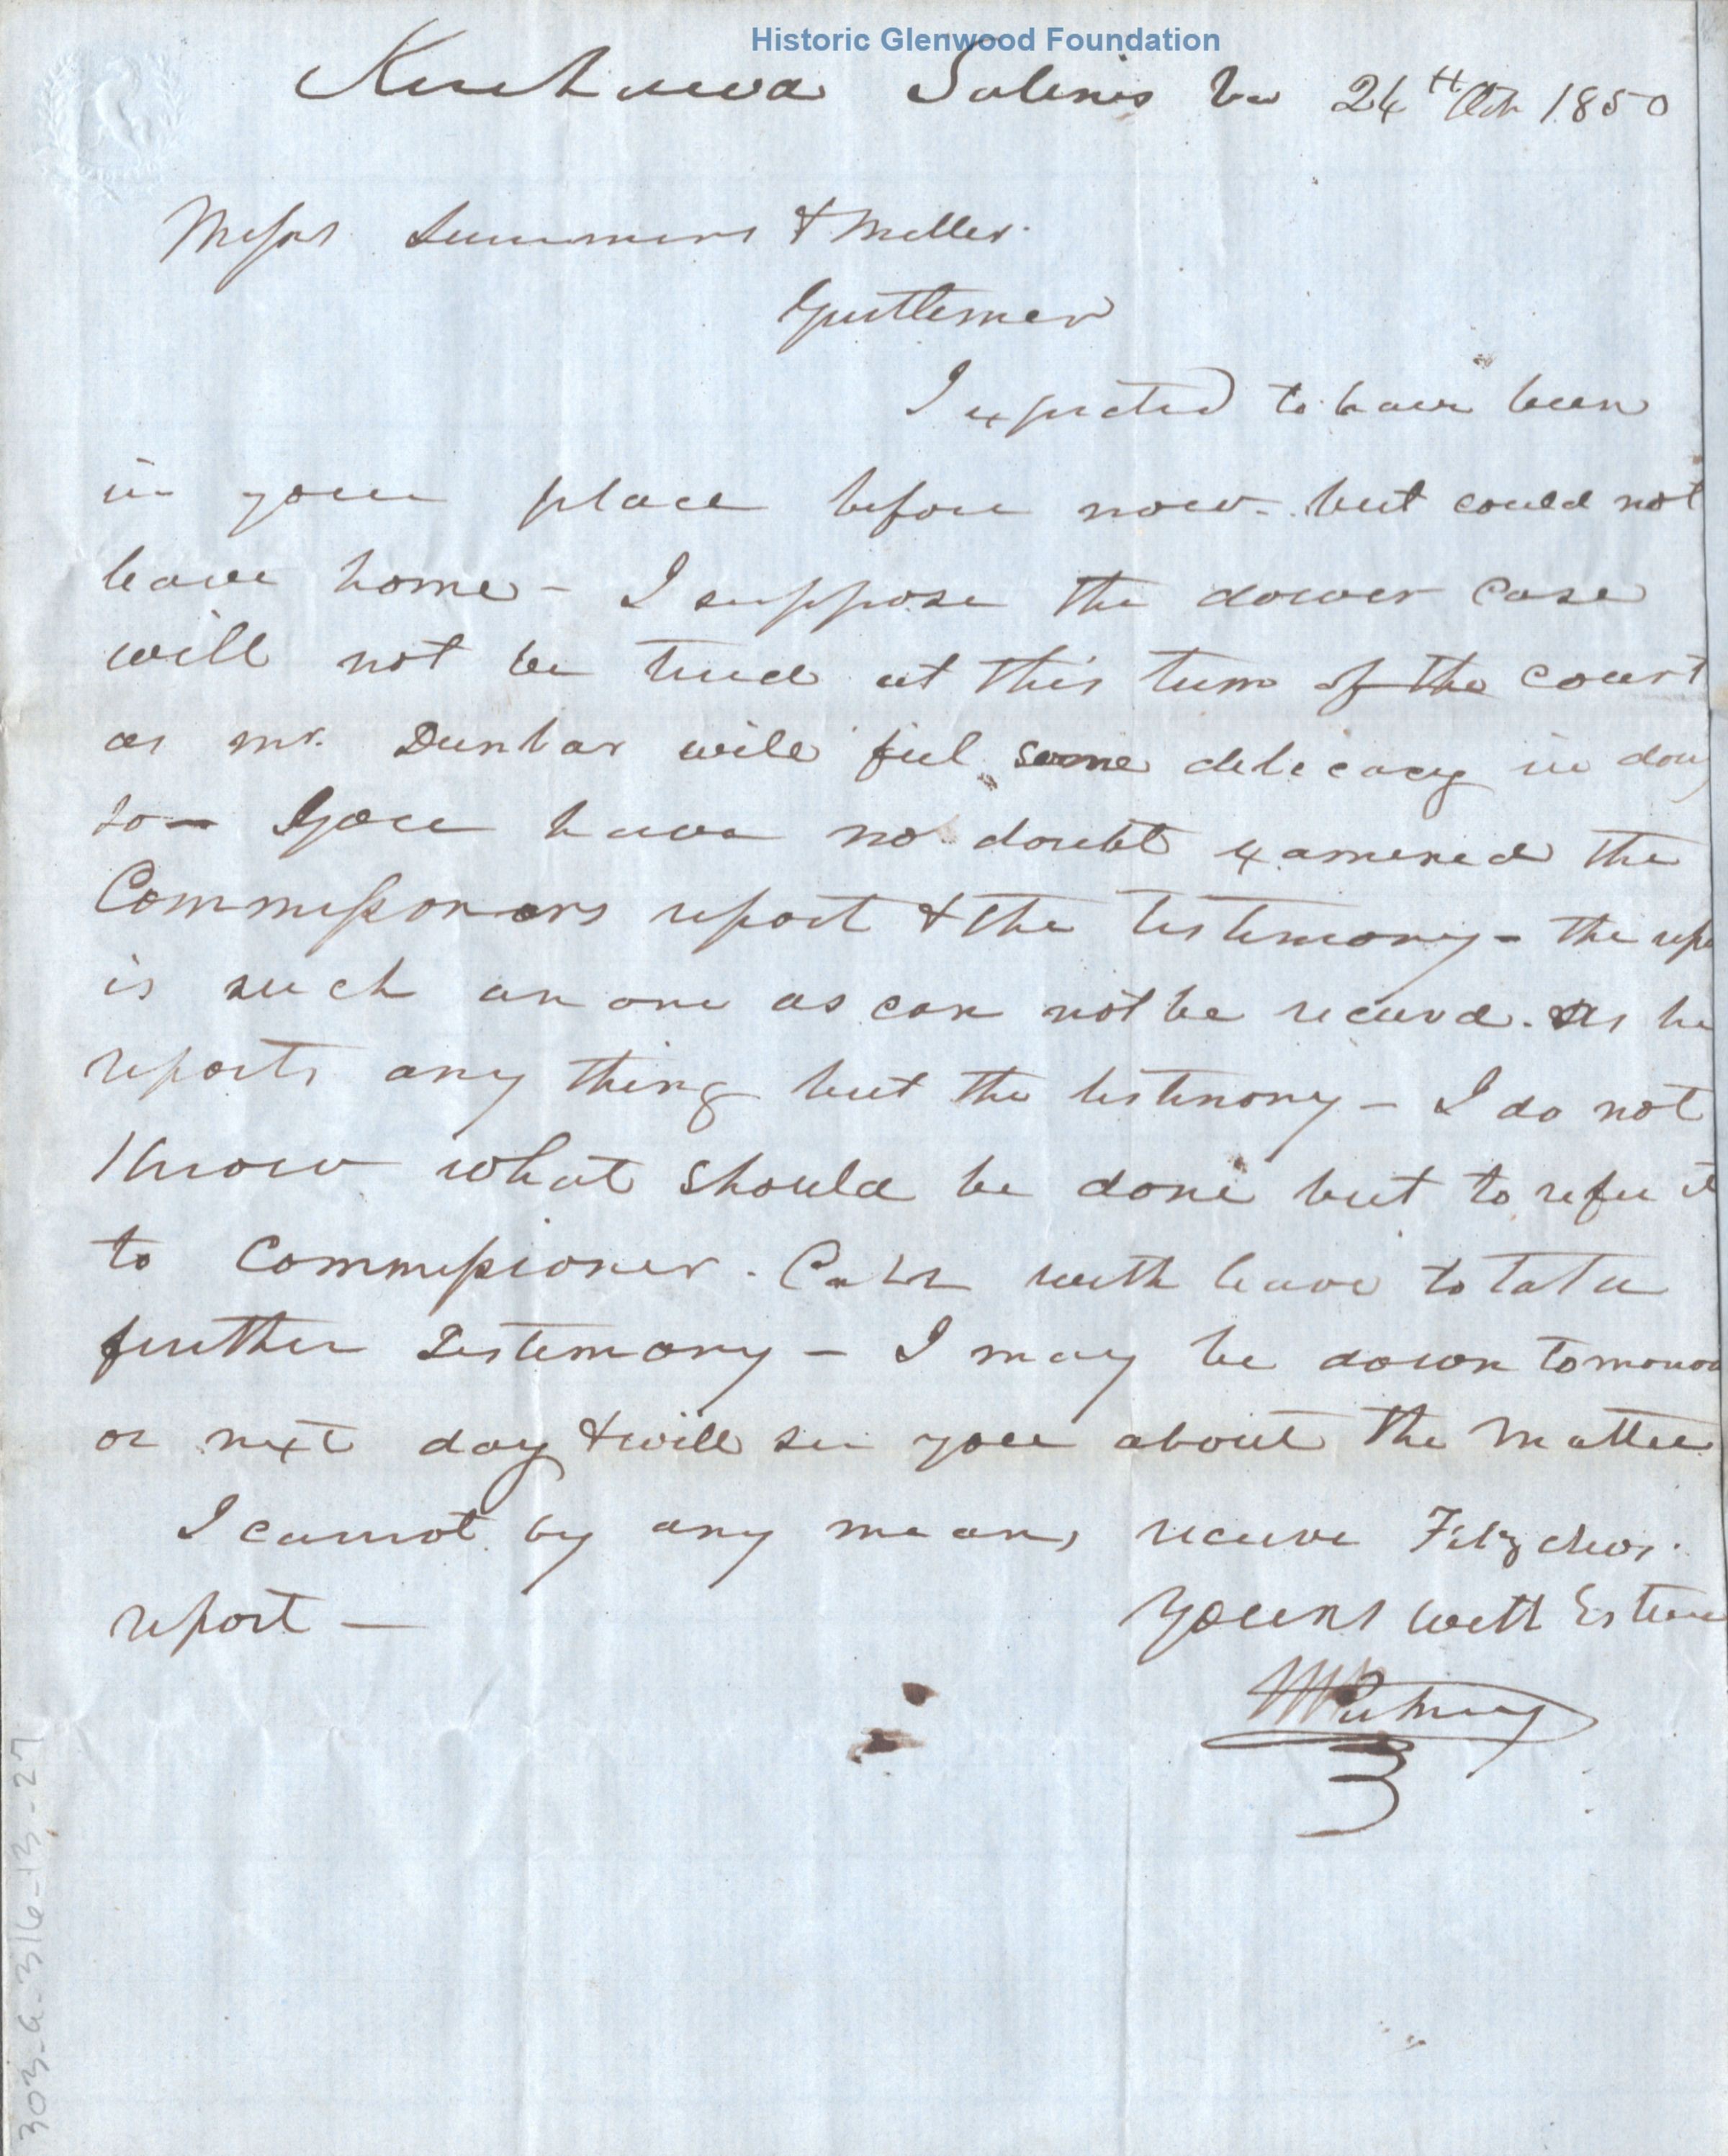 Historic Glenwood Foundation
Kenhawa Salines Va 24th Oct 1850
Messrs Summers & Miller.
Gentlemen
I expected to have been
in your place before now - but could not
leave home - I suppose the dower case
will not be tried at this term of the court
as mr. Dunbar will feel some delicacy in doing
so - You have no doubt examined the
Commissioners report & the testimony - the repo
is such an one as can not be received. As he
reports any thing but the testimony - I do not
Know what should be done but to refer it
to Commissioner. with leave to take
further testimony - I may be down tomorrow
or next day & will see you about the matter
I cannot by any means receive Fitzhughs.
report -
Yours with Esteem
Putney
303-a-316-13-27